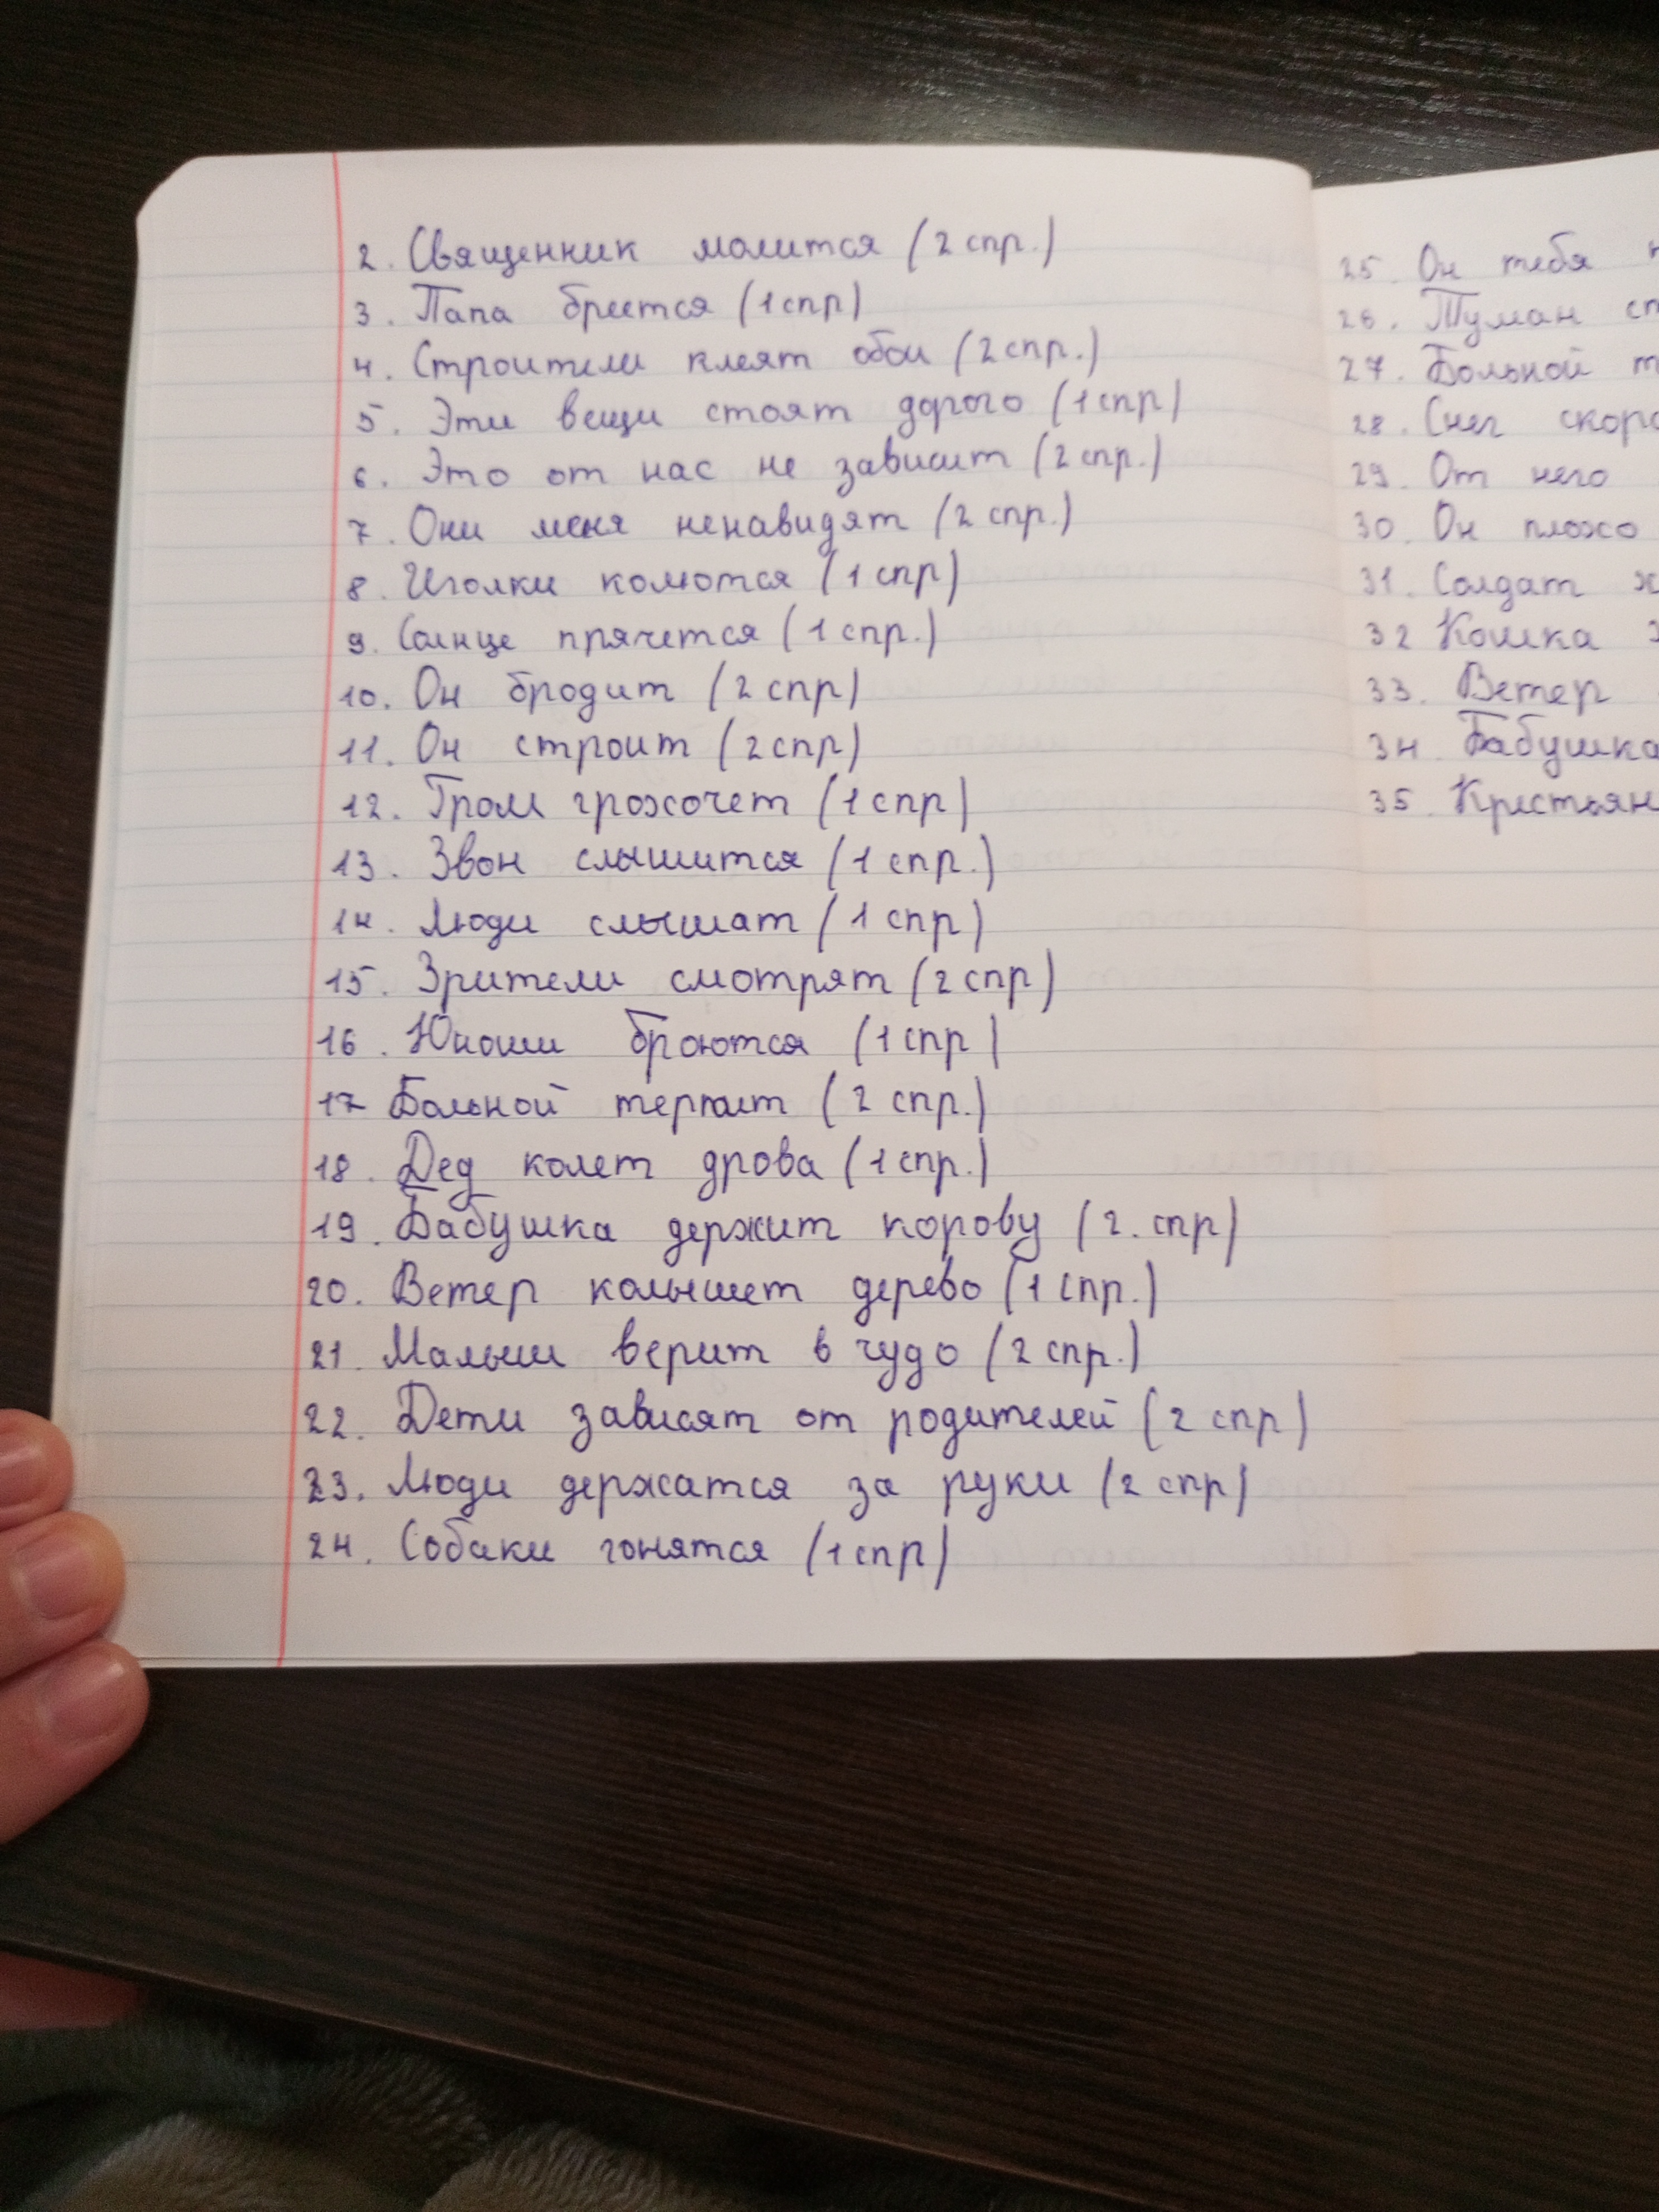 2. Священник молится (2 спр.)
3. Папа бреется (1 спр)
4. Строители клеят обои (2 спр.)
5. Эти вещи стоят дорого (1 спр)
6. Это от нас не зависит (2 спр.)
7. Они меня ненавидят (2 спр.)
8. Иголки колются (1 спр)
9. Солнце прячется (1 спр.)
10. Он бродит (2 спр)
11. Он строит (2 спр)
12. Гром грохочет (1 спр)
13. Звон слышится (1 спр.)
14. Люди слышат (1 спр)
15. Зрители смотрят (2 спр)
16. Юноши броются (1 спр)
17 Больной терпит (2 спр.)
18. Дед колет дрова (1 спр.)
19. Бабушка держит корову (2. спр)
20. Ветер колышет дерево (1 спр.)
21. Малыш верит в чудо (2 спр.)
22. Дети зависят от родителей (2 спр)
23. Люди держатся за руки (2 спр)
24. Собаки гонятся (1 спр)
25. Он тебя
26. Туман
27. Больной
28. Снег
29. От него
30. Он плохо
31. Солдат
32 Кошка
33. Ветер
34 Бабушка
35. Крестьян